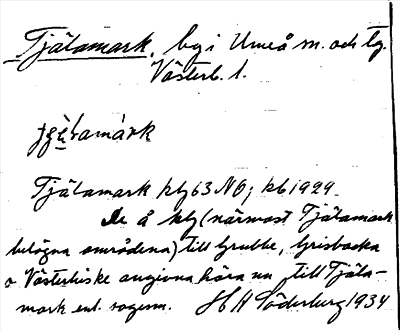 Tjälamark, by i Umeå sn. och tg.
Västerb. l.
Tjälamark klg 63 NO; kb 1929.
De å klg (närmast Tjälamark
belägna områdena) till Grubbe, Grisbacka
o Västerhiske angivna höra nu till Tjäla-
mark enl. sagesm. H A Söderberg 1934